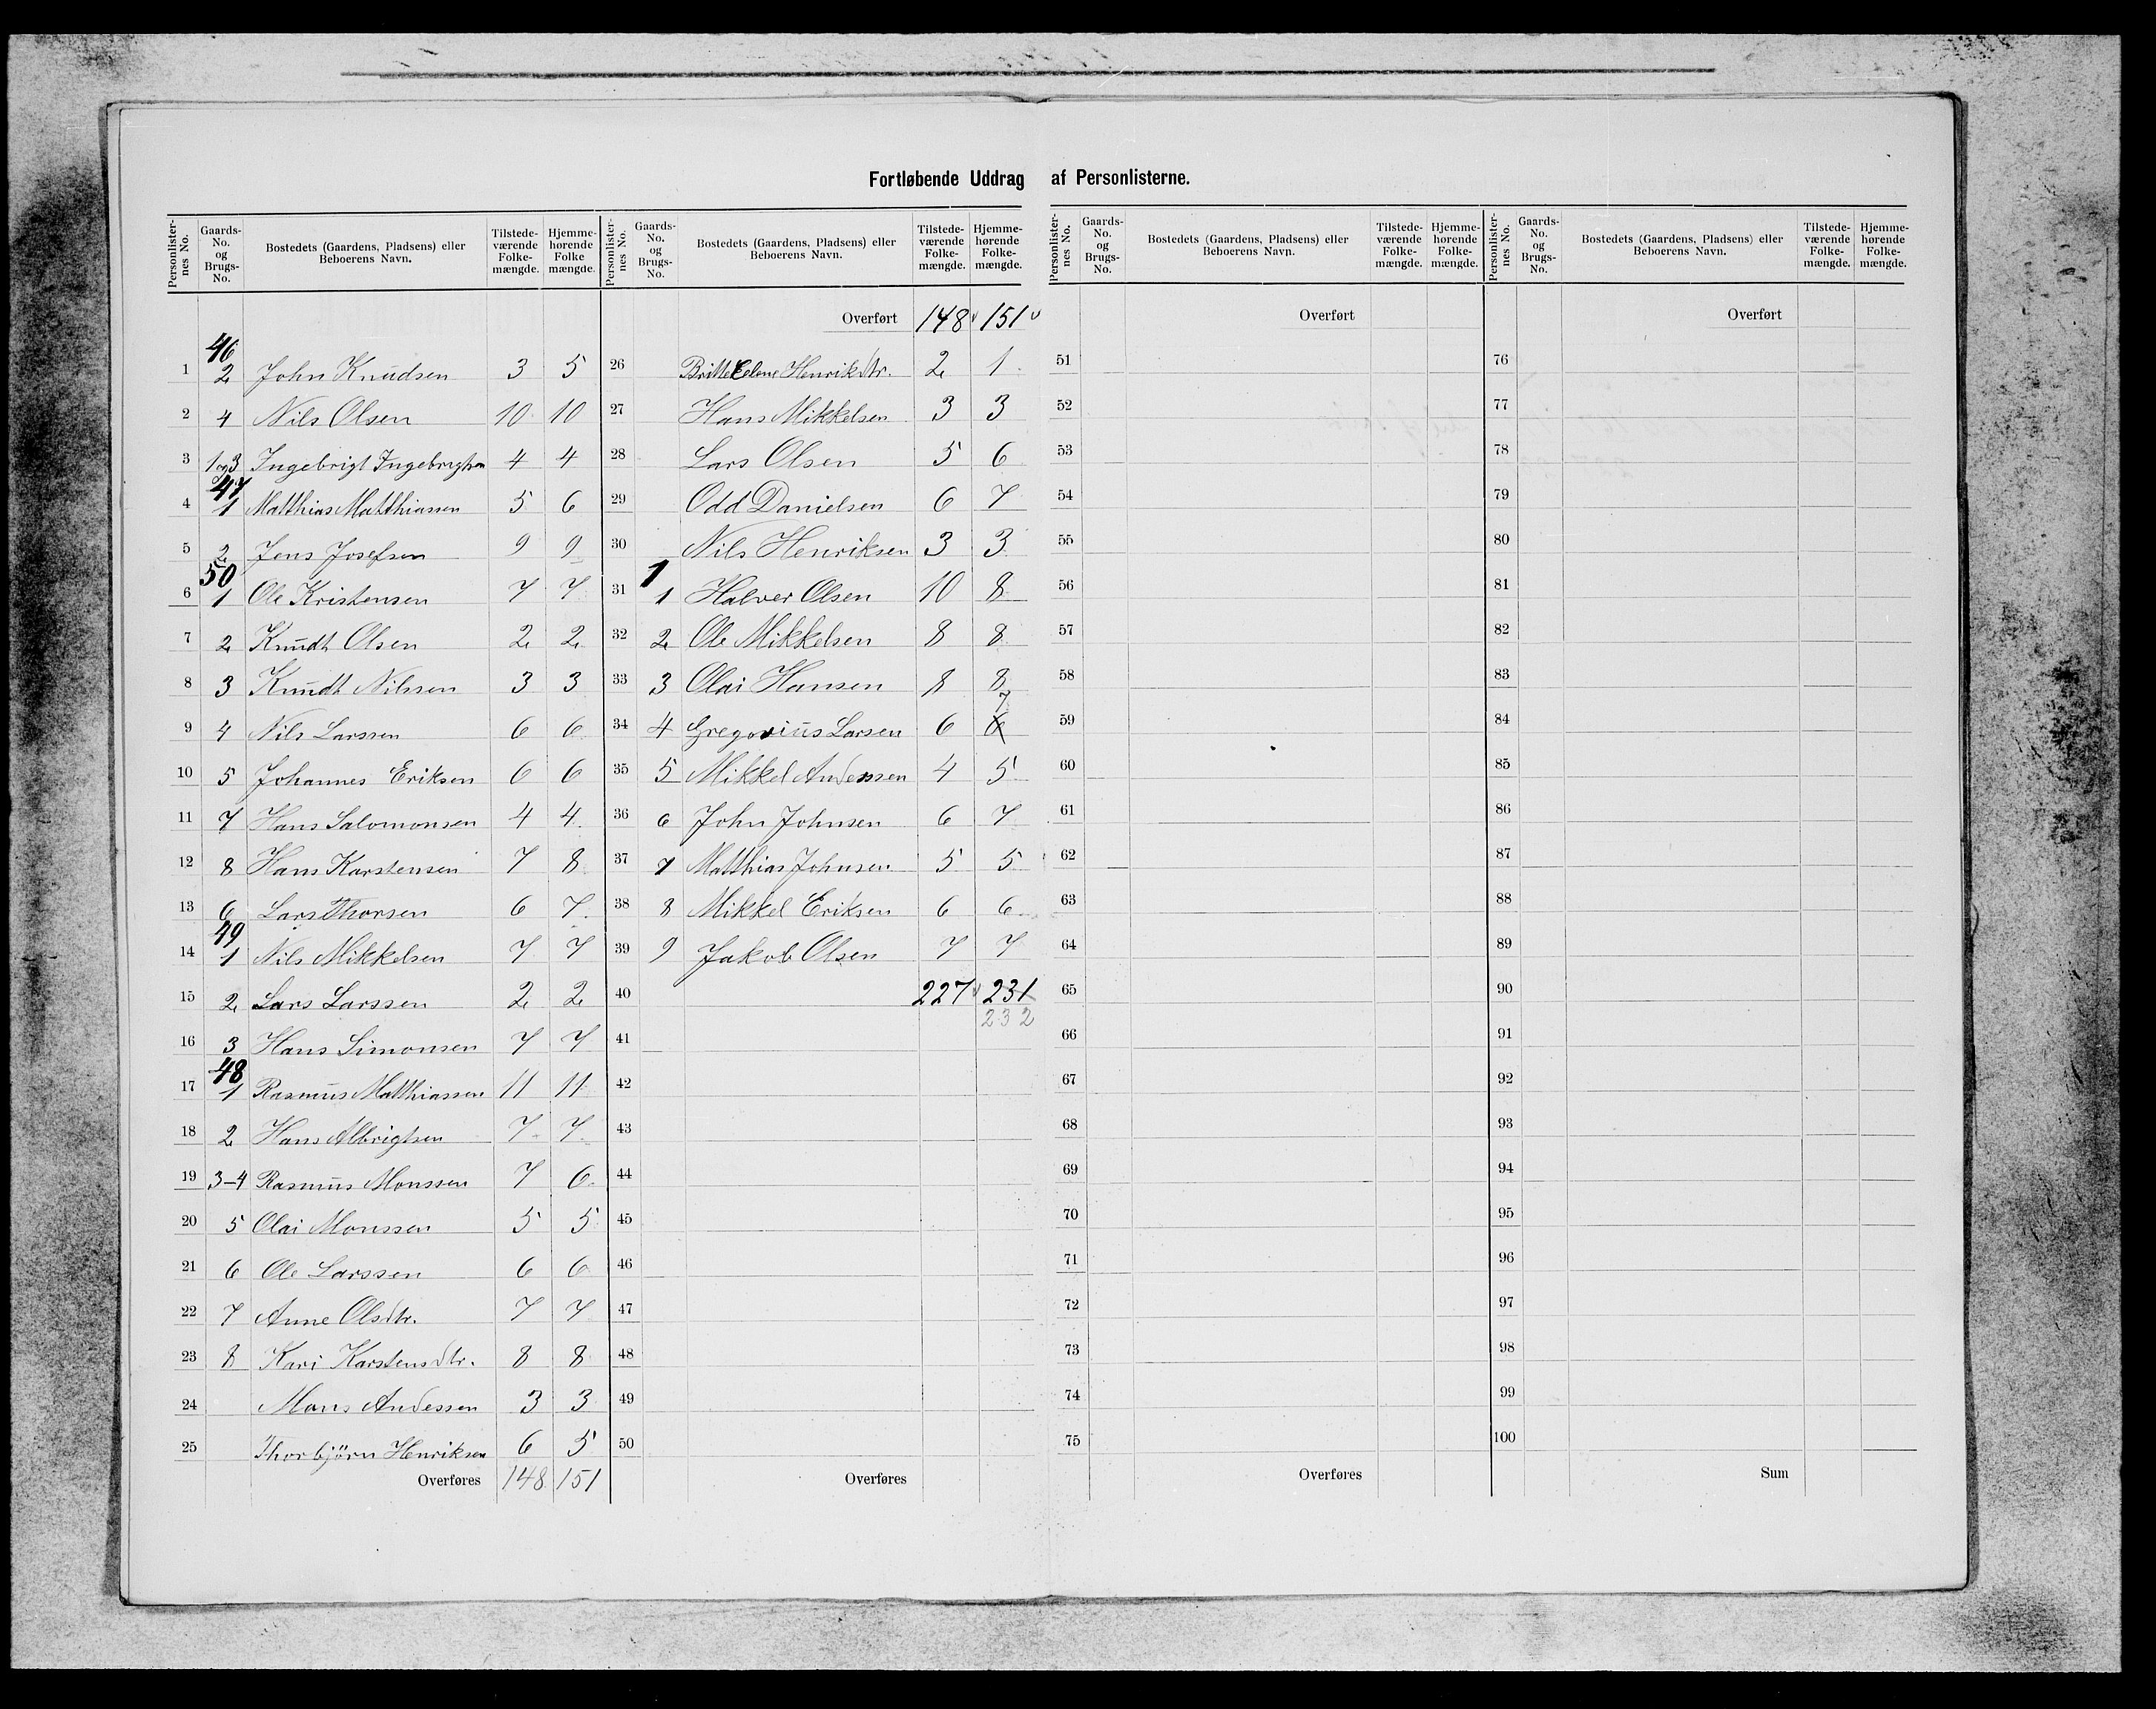 Fortløbende Uddrag af Personlisterne.
Personlister-nes No. | Gaards-No. og Brugs-No. | Bostedets (Gaardens, Pladsens) eller Beboerens Navn. | Tilstede-værende Folke-mængde. | Hjemme-hørende Folke mængde.
46
1 2 John Knudsen 3 5
2 4 Nils Olsen 10 10
3 1 og 3 Ingebrigt Ingebrigtsen 4 4
47
4 1 Matthias Matthiassen 5 6
5 2 Jens Josefsen 9 9
50
6 1 Ole Kristensen 7 7
7 2 Knudt Olsen 2 2
8 3 Knudt Nilssen 3 3
9 4 Nils Larssen 6 6
10 5 Johannes Eriksen 6 6
11 7 Hans Salomonsen 4 4
12 8 Hans Karstensen 7 8
13 6 Lars Thorsen 6 7
49
14 1 Nils Mikkelsen 7 7
15 2 Lars Larssen 2 2
16 3 Hans Simonsen 7 7
48
17 1 Rasmus Matthiassen 11 11
18 2 Hans Albrigtsen 7 7
19 3-4 Rasmus Monssen 7 6
20 5 Olai Monssen 5 5
21 6 Ole Larssen 6 6
22 7 Anne Olsdtr. 7 7
23 8 Kari Karstensdtr. 8 8
24 Mons Andessen 3 3
25 Thorbjörn Henriksen 6 5
Overføres 148 151
Personlister-nes No. | Gaards-No. og Brugs-No. | Bostedets (Gaardens, Pladsens) eller Beboerens Navn. | Tilstede-værende Folke-mængde. | Hjemme-hørende Folke-mængde.
Overført 148 151
26 Britte Elene Henrikdtr. 2 1
27 Hans Mikkelsen 3 3
28 Lars Olsen 5 6
29 Odd Danielsen 6 7
30 Nils Henriksen 3 3
1
31 1 Halver Olsen 10 8
32 2 Ole Mikkelsen 8 8
33 3 Olai Hansen 8 8
7
34 4 Gregorius Larsen 6 6
35 5 Mikkel Andessen 4 5
36 6 John Johnsen 6 7
37 7 Matthias Johnsen 5 5
38 8 Mikkel Eriksen 6 6
39 9 Jakob Olsen 7 7
40 227 231
232
41
42
43
44
45
46
47
48
49
50
Overføres
Personlister-nes No. | Gaards-No. og Brugs-No. | Bostedets (Gaardens, Pladsens) eller Beboerens Navn. | Tilstede-værende Folke-mængde. | Hjemme-hørende Folke-mængde.
Overført
51
52
53
54
55
56
57
58
59
60
61
62
63
64
65
66
67
68
69
70
71
72
73
74
75
Overføres
Personlister-nes No. | Gaards-No. og Brugs-No. | Bostedets (Gaardens, Pladsens) eller Beboerens Navn. | Tilstede-værende Folke-mængde. | Hjemme-hørende Folke-mængde.
Overført
76
77
78
79
80
81
82
83
84
85
86
87
88
89
90
91
92
93
94
95
96
97
98
99
100
Sum